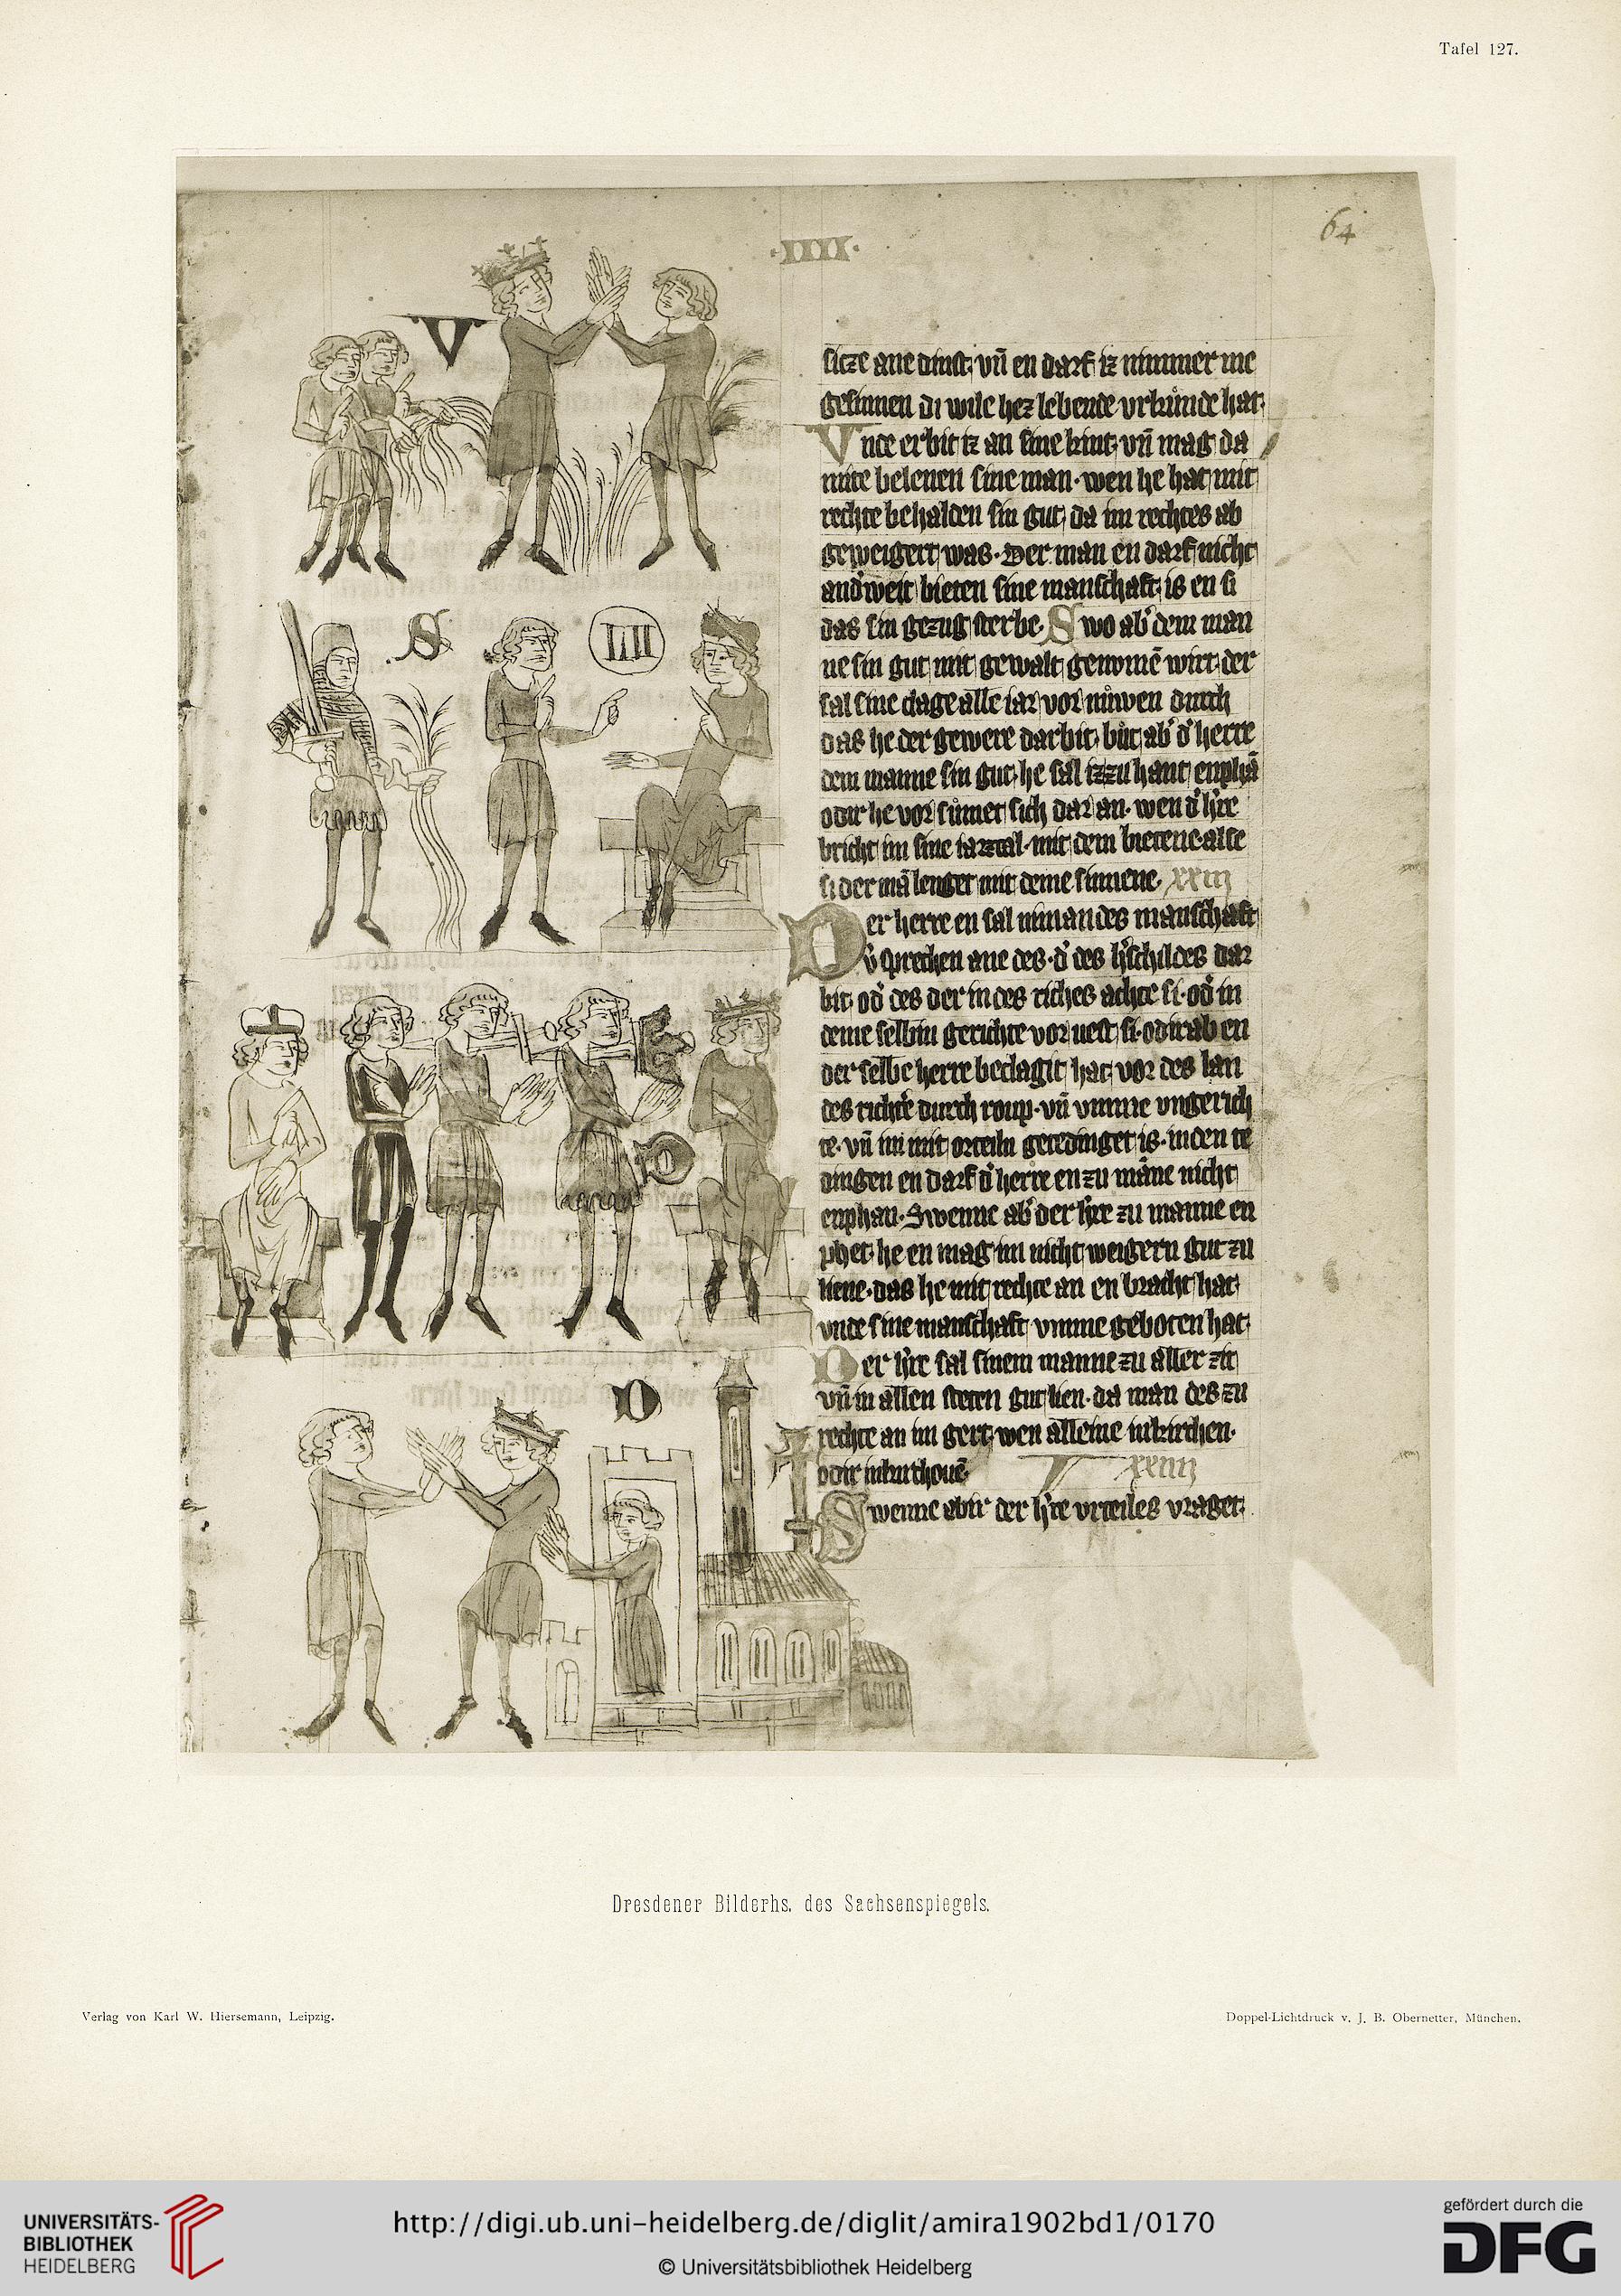 Tafel 127.
64
·IIII·
V
sicze ane dinst· vn̄ en darf iz nimmer me
gesinnen di wile her lebende vrkunde hat·
Vnde erbit iz an sine kint· vn̄ mag da
mite belenen sine man· wen he hat mit
rechte behalden sin gut da im rechtes ab
geweigert was· Der man en darf nicht
andˀweit bieten sine manschaft· is en si
das sin gezug sterbe· Swo abˀ dem man
ne sin gut mit gewalt genomē wirt· der
sal sine clage alle iar vor nuwen durch
das he der gewere darbit· but abˀ dˀ herre
dem manne sin gut· he sal iz zu hant enphā
odir he vor sumet sich dar an· wen dˀ hˀre
bricht im sine iarczal· mit dem bietene· alse
si der mā lenget mit deme sinnene· xxiij
Der herre en sal nimandes manschaft
vˀsprechen ane des· dˀ des hˀschildes dar
bit· odˀ des der in des riches achte si· odˀ in
deme selbin gerichte vor vest si· odir ab en
der selbe herre beclagit hat· vor des lan
des richtˀe durch roup· vn̄ vmme vngerich
te· vn̄ im mit orteiln geteidinget is· in den te
dingen en darf dˀ herre en zu māne nicht
enphan· Swenne abˀ der hˀre zu manne en
phet· he en mag im nicht weigern gut zu
liene· das he mit rechte an en bracht hat·
vnde sine manschaft vmme geboten hat·
Der hˀre sal sinem manne zu aller zit
vn̄ in allen steten gut lien· da man des zu
rechte an im gert· wen alleine in kirchen·
odir in kirchouē· xxiiij
Swenne abir der hˀre vrteiles vraget·
S
LII
D
D
Dresdener Bilderhs. des Sachsenspiegels.
Verlag von Karl W. Hiersemann, Leipzig.
Doppel-Lichtdruck v. J. B. Obernetter, München.
UNIVERSITÄTS-
BIBLIOTHEK
HEIDELBERG
http://digi.ub.uni-heidelberg.de/diglit/amira1902bd1/0170
© Universitätsbibliothek Heidelberg
gefördert durch die
DFG